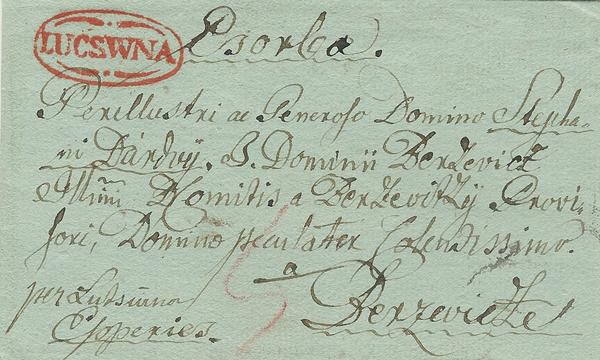 LUCSWNA
Csorba.
Perillustri ac Generoso Domino Stepha-
ni Dárdvÿ. I. Dominii Berzevicz
Illmi Homitis a Berzevitzÿ Provi-
sori, Domino peculatter Colendissimo.
a
per Lutsivna Berzevicze
Eperies.